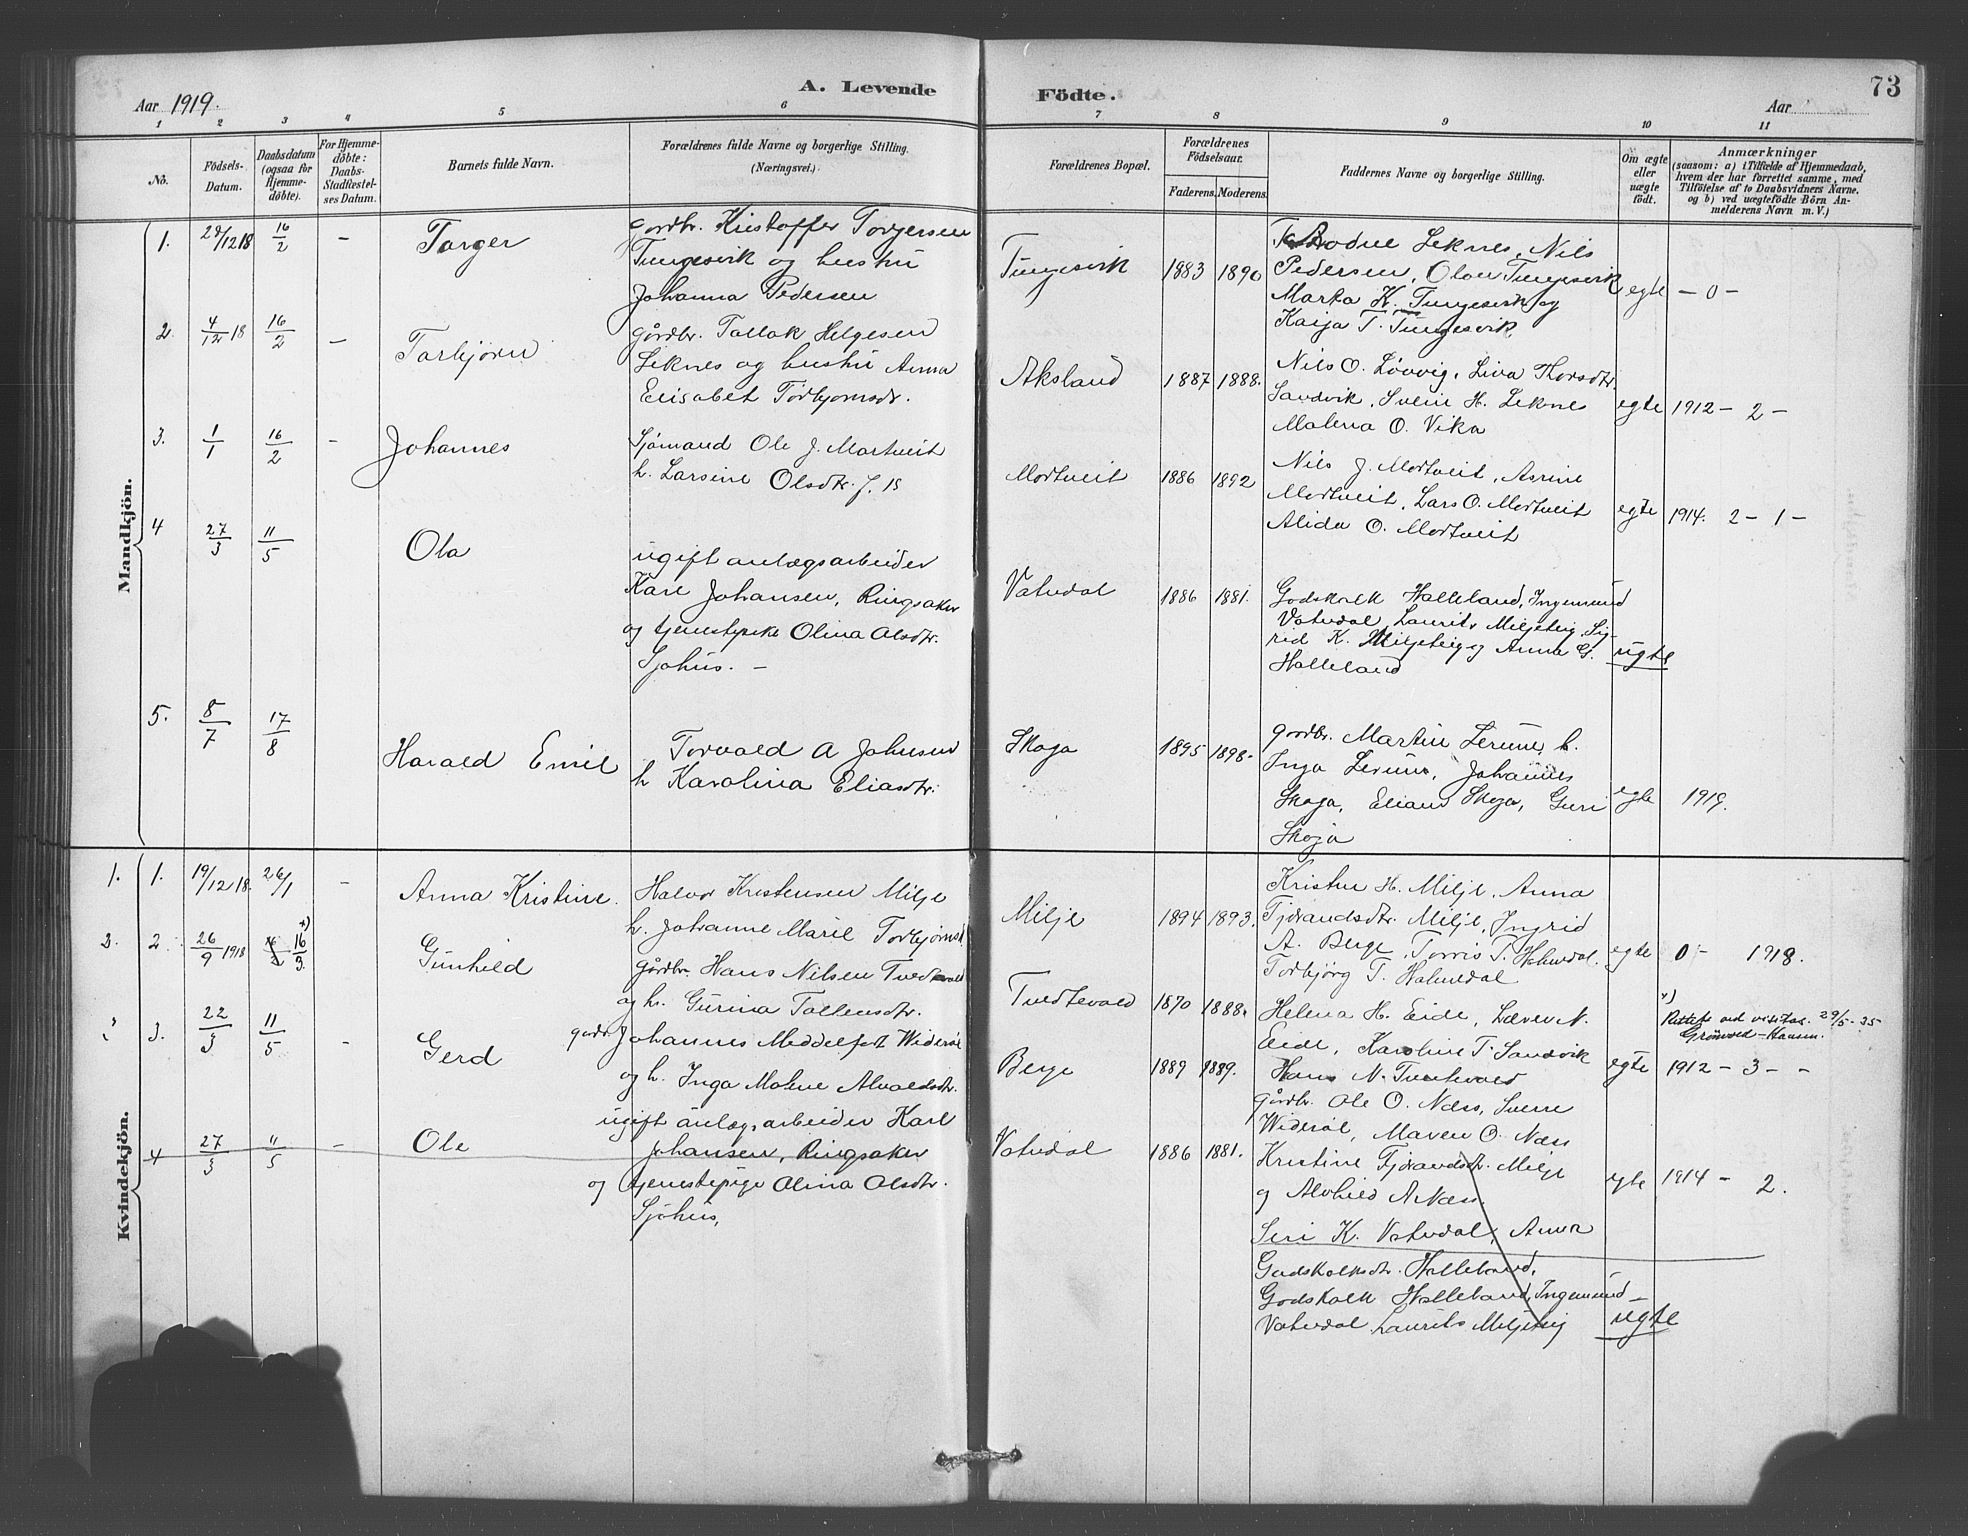 Aar 1919.
A. Levende Födte.
Aar
73
1 2 3 4 5 6 7 8 9 10 11
No.
Födsels-
Datum.
Daabsdatum
(ogsaa for
Hjemme-
döbte).
For Hjemme-
döbte:
Daabs-
Stadfestel-
ses Datum.
Barnets fulde Navn.
Forældrenes fulde Navne og borgerlige Stilling.
(Næringsvei.)
Forældrenes Bopæl.
Forældrenes
Födselsaar.
Faderens. Moderens.
Faddernes Navne og borgerlige Stilling.
Om ægte
eller
uægte
födt.
Anmærkninger
(saasom: a) i Tilfælde af Hjemmedaab,
hvem der har forrettet samme, med
Tilföielse af to Daabsvidners Navne,
og b) ved uægtefödte Börn An-
melderens Navn m. V.)
Mandkjön.
1. 12 18 16/2 - Torger
gordbr. Kristoffer Torgersen
Tungesvik og hustru
Johanna Pedersen
Tungesvik 1883 1890
Leknes, Nils
Pedersen, Olav Tungesvik
Marta K. Tungesvik og
Kaija T. Tungesvik
egte - 0 -
2. 4/12 18 16/2 - Torbjörn
gårdbr. Tallak Helgesen
Leknes og hustru Anna
Elisabet Torbjornsdr.
Aksland 1887 1888.
Nils O. Lövvig, Lina Thorsdtr.
Sandvik, Svein H. Leknes
Malena O. Vika
egte 1912 - 2 -
3. 1/1 16/2 - Johannes
Sjömand Ole J. Mortveit
h. Larsine Olsdtr.
Mortveit 1886 1892
Nils J. Mortveit,
Mortveit, Lars O. Mortveit
Alida O. Mortveit
egte 1914. 2 - 1 -
4 27/3 11/5 Ola
ugift anlægsarbeider
Karl Johansen, Ringsaker
og tjenestepike Olina Olsdtr.
Sjöhus. -
Vatndal 1886 1881.
Godskalk Halleland, Ingemund
Vatndal, Laurits Miljeteig, Sig-
rid K. Miljeteig og Anna G.
Halleland
ugte
5. 8/7 17/8 Harald Emil
Torvald A Johnsen
h Karolina Eliasdtr.
Skoga 1895 1898-
gordbr. Martin Lerum, h.
Inga Lerum, Johannes
Skoga, Skoga, Guri
Skoga
egte 1919.
Kvindekjön.
1. 1. 19/12 18. 26/1 - Anna Kristine.
Halvor Kristensen Milje
h. Johanne Marie
Milje 1894 1893.
Kristen H. Milje, Anna
Tjorandsdtr. Milje, Ingrid
A. Berge, Torris T. Halvedal.
Torbjörg T. Halvedal
egte 0 - 1918.
2. 2. 26/9 1918 16/3. Gunhild
gårdbr. Hans Nilsen Tvedtevold
og h. Gurina
Tvedtevold 1870 1888.
Helena H. Eide, N.
Eide, Karoline T. Sandvik
Hans N. Tvedtevold
Rettet ved visitas. 29/5-35
Grönvold-Hansen.
3. 22/3 11/5 - Gerd
gårdbr. Johannes Meddelfart Wideröe
og h. Inga Malene
Berge 1889 1889.
gårdbr. Ole O. Næss, Sverre
Wideröe, Maren O. Næss
Kristine Tjorandsdtr. Milje
og Alvhild A Næss
egte 1912 - 3 - -
4 27/3 11/5 - Ole
ugift anlægsarbeider Karl
Johansen, Ringsaker
og tjenestepige Olina Olsdtr.
Sjöhus,
Vatndal 1886 1881.
Siri K. Vatndal, Anna
Godskalksdtr. Halleland,
Godskalk Halleland, Ingemund
Vatndal Laurits Miljeteig
egte 1914 - 2.
ugte